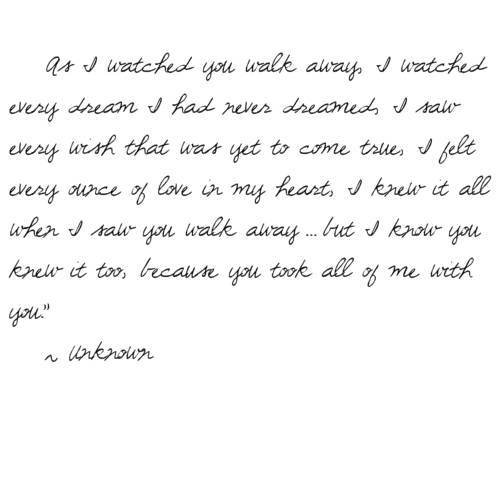 As I watched you walk away, I watched
every dream I had never dreamed, I saw
every wish that was yet to come true, I felt
every ounce of love in my heart, I knew it all
when I saw you walk away ... but I know you
knew it too, because you took all of me with
you."
~ Unknown